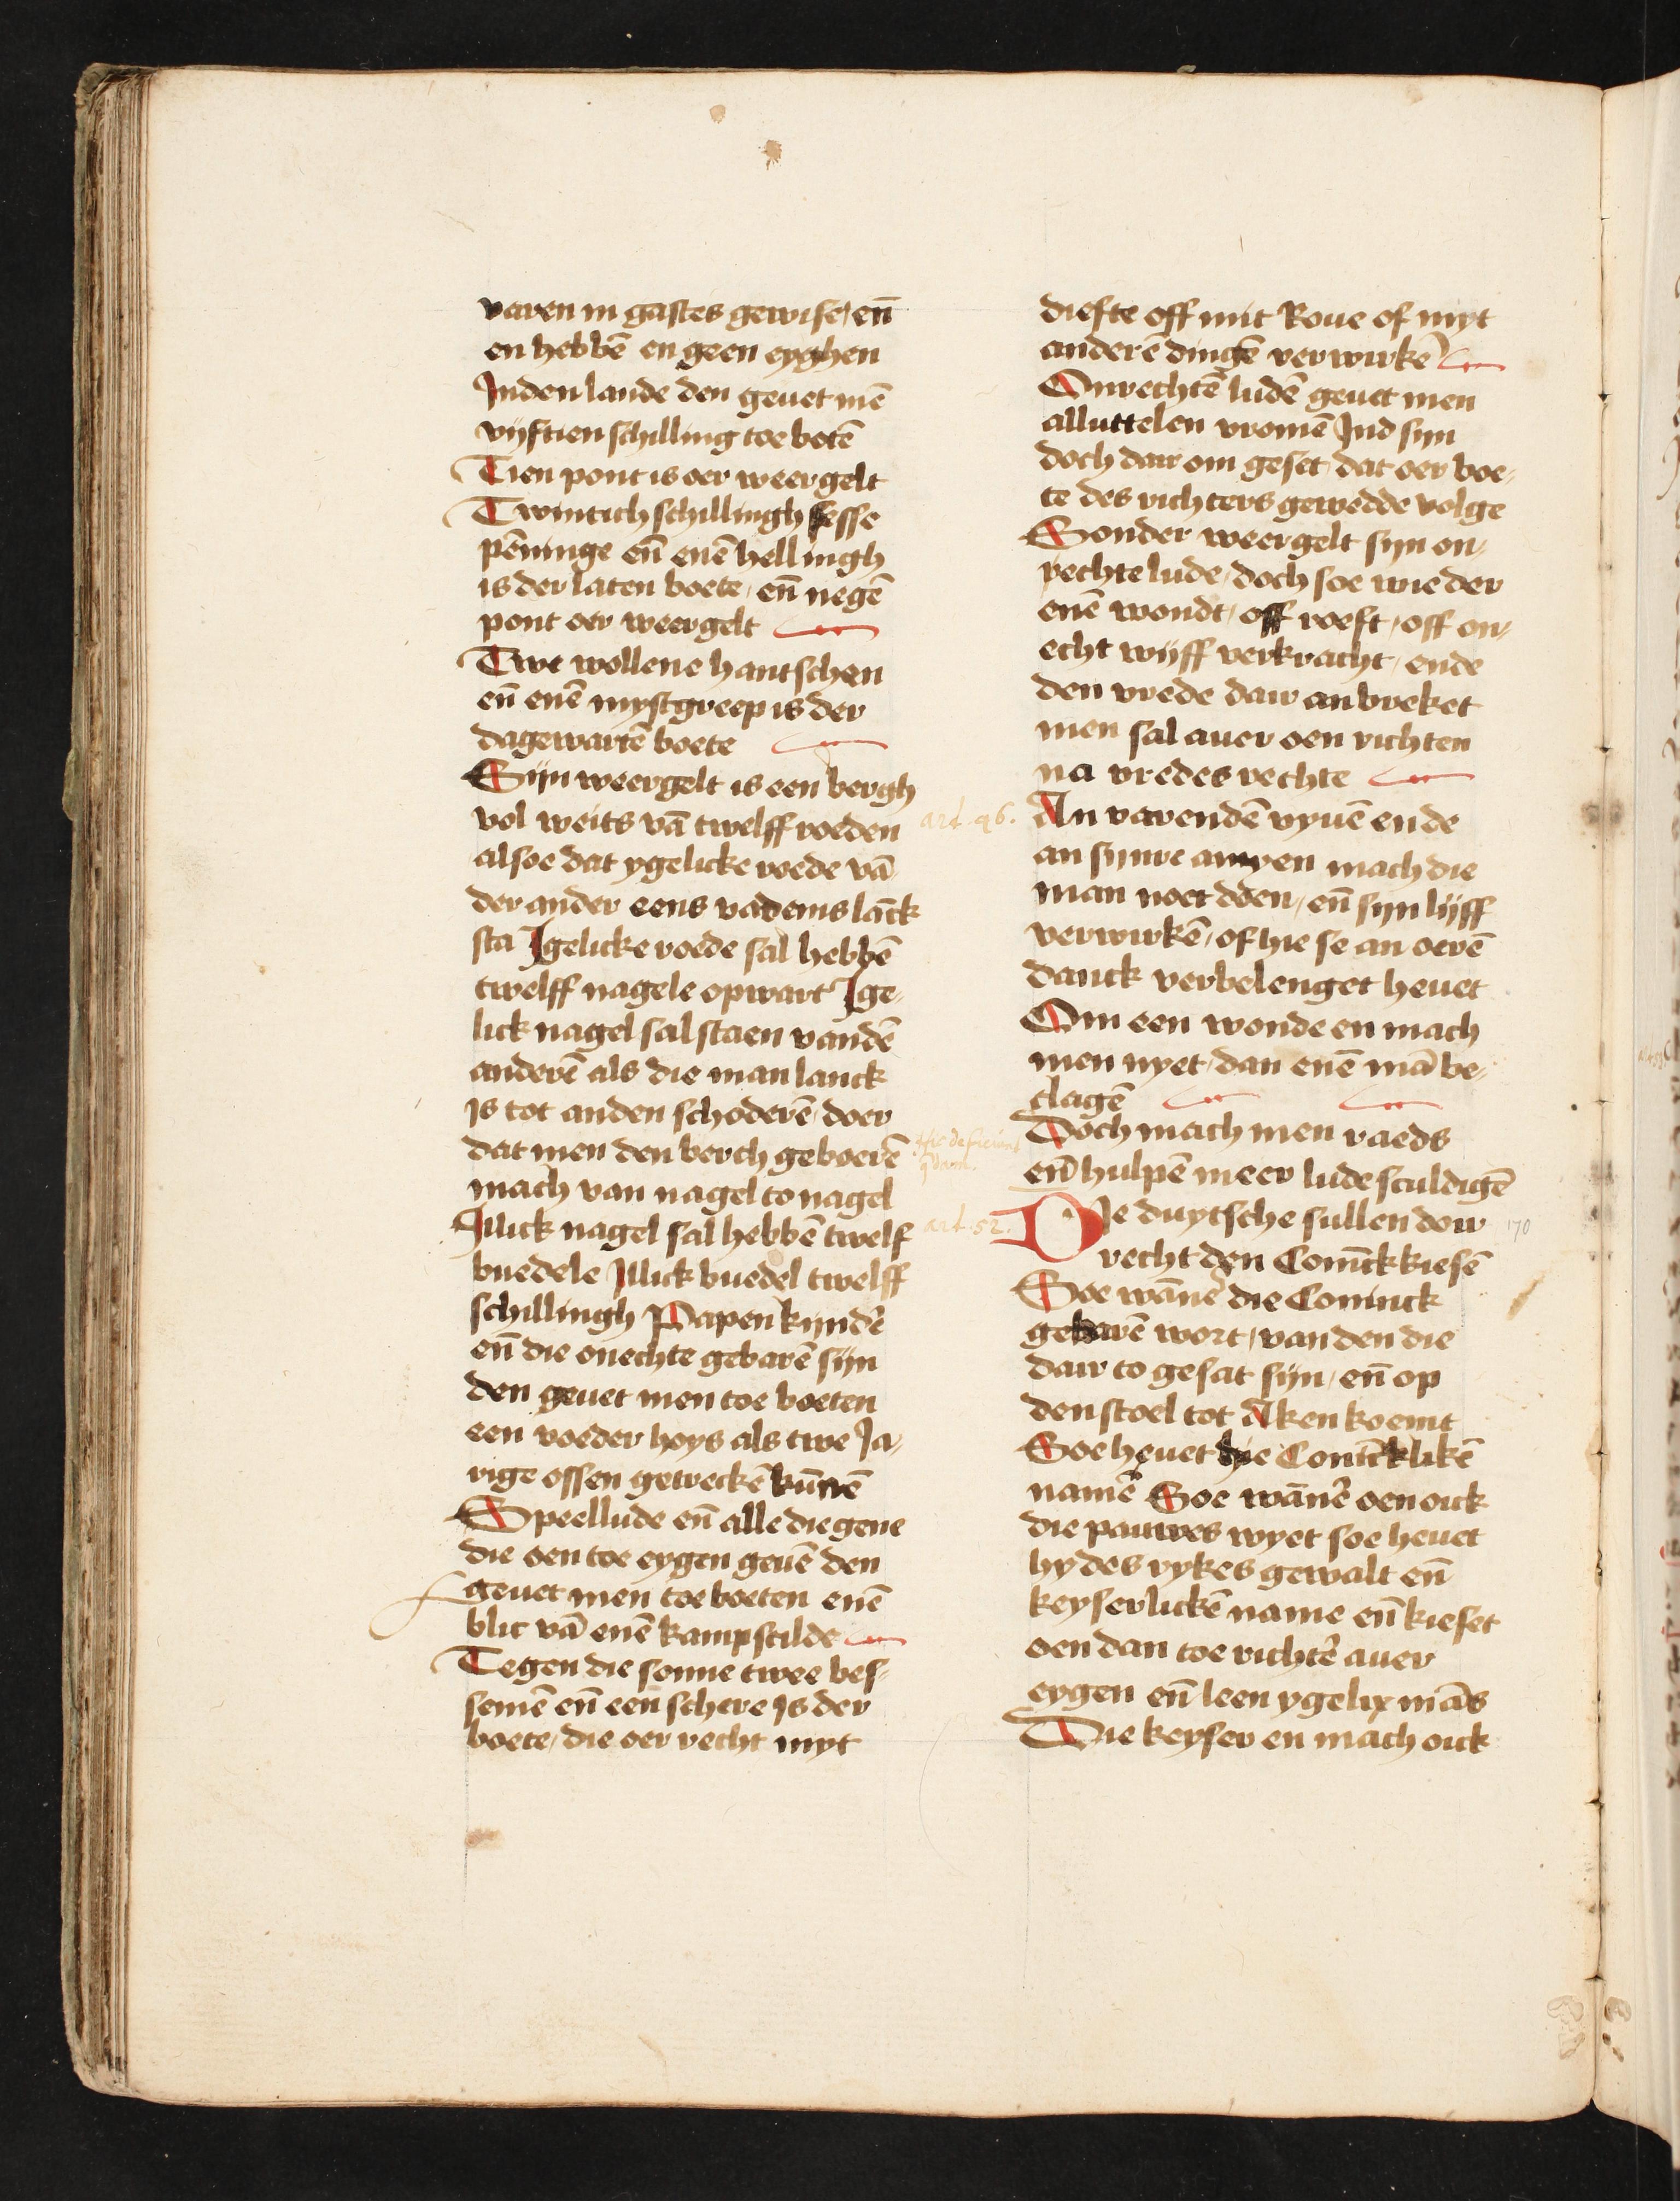 varen in gastes gewise / en̄
en hebbē en geen eyghen
Inden lande den geuet mē
vijftien schilling toe botē
Tien pont is oer weergelt
Twintich schillingh sesse
pēninge en̄ enē hellingh
is der laten boete / en̄ negē
pont oer weergelt
Twe wollene hantschen
en̄ enē mystgreep is der
dagewartē boete
Sijn weergelt is een bergh
vol weits vā twelff roeden
alsoe dat ygelicke roede vā
der ander eens vadems lāck
sta Igelicke roede sal hebbē
twelff nagele opwart Ige-
lick nagel sal staen vandē
anderē als die man lanck
is tot anden schoderē / doer
dat men den berch geboerē
mach van nagel to nagel
Illick nagel sal hebbē twelf
buedele Illick buedel twelff
schillingh Papen kyndē
en̄ die onechte gebarē sijn
den geuet men toe boeten
een voeder hoys als twe Ja-
rige ossen getreckē kūnē
Speellude en̄ alle die gene
die oen toe eygen geuē den
geuet men toe boeten enē
blic vā enē kampscilde
Tegen die sonne twee bes-
semē en̄ een schere is der
boete / die oer recht myt
diefte off mit Roue of myt
anderē dingē verwirkē
Onrechtē ludē geuet men
alluttelen vromē Ind syn
doch dair om geset dat oer boe-
te des richters gewedde volge
Sonder weergelt syn on-
rechte lude / doch soe wie der
enē wondt / off roeft / off on-
echt wijff verkracht / ende
den vrede dair an breket
men sal auer oen richten
na vredes rechte
art. 46. An varendē vyuē ende
an synre amyen mach die
man noet doen / en̄ syn lijff
verwirkē / of hie se an oerē
danck verbelenget heuet
Om een wonde en mach
men nyet dan enē mā be-
clagē
Doch mach men raeds
en̄ hulpē meer lude sculdigē
art. 52. Die duytsche sullen doir 170
recht den Conīck kiesē
Soe wāner die Coninck
gekarē wort / van den die
dair to gesat sijn / en̄ op
den stoel tot Aken koemt
Soe heuet hie Conīcklikē
namē Soe wāner oen oick
die pauwes wyet soe heuet
hy des rykes gewalt en̄
keyserlickē name en̄ kieset
oen dan toe richter auer
eygen en̄ leen ygelix mās
Die keyser en mach oick